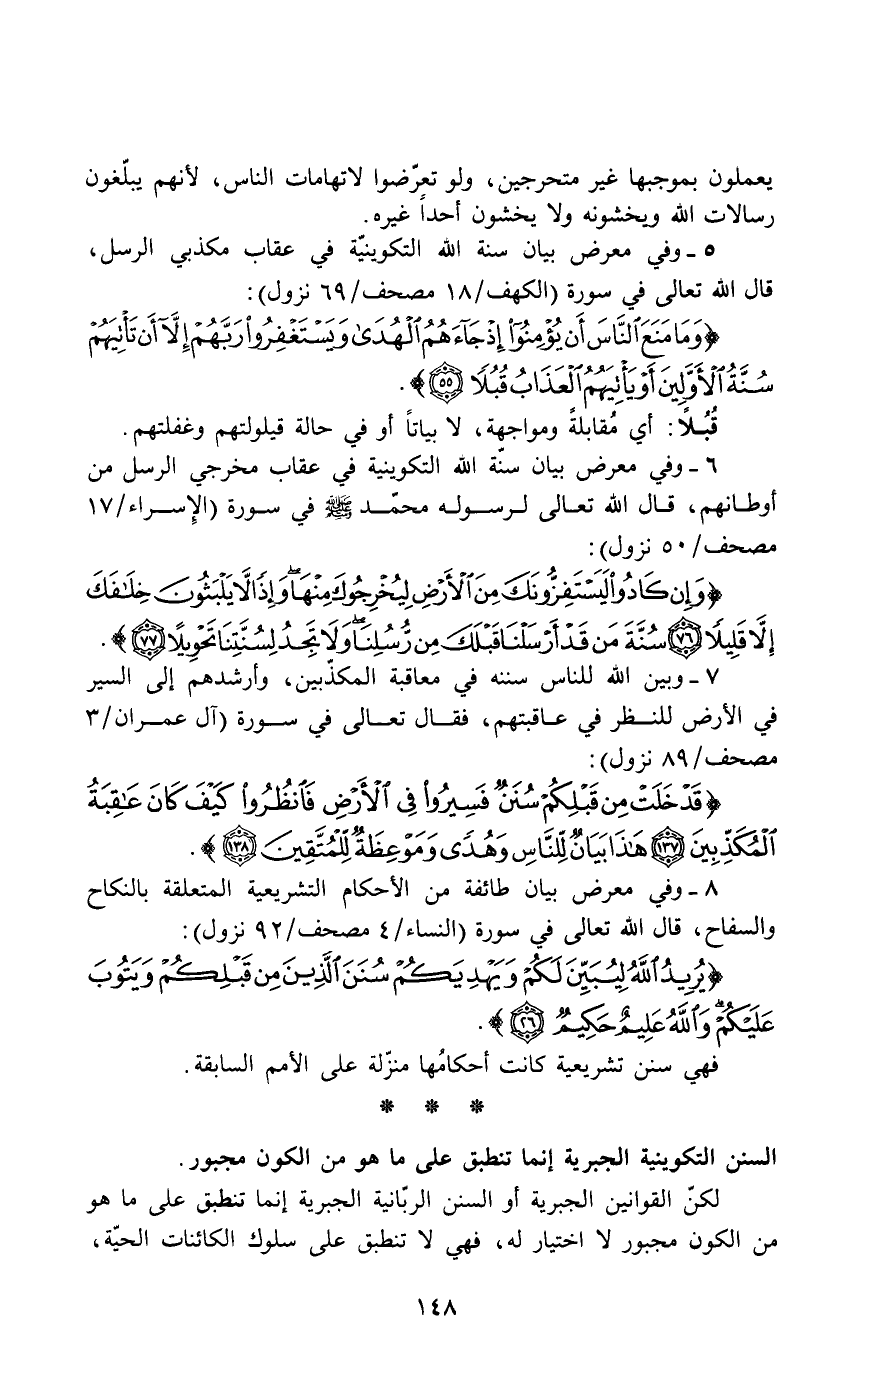 يعملون بموجبها غير متحرجين، ولو تعرّضوا لاتهامات الناس، لأنهم يبلّغون
رسالات الله ويخشونه ولا يخشون أحداً غيره.
٥ ـ وفي معرض بيان سنة الله التكوينيّة في عقاب مكذبي الرسل،
قال الله تعالى في سورة (الكهف/١٨ مصحف/٦٩ نزول):
﴿وَمَا مَنَعَ ٱلنَّاسَ أَن يُؤْمِنُوٓا۟ إِذْ جَآءَهُمُ ٱلْهُدَىٰ وَيَسْتَغْفِرُوا۟ رَبَّهُمْ إِلَّآ أَن تَأْتِيَهُمْ
سُنَّةُ ٱلْأَوَّلِينَ أَوْ يَأْتِيَهُمُ ٱلْعَذَابُ قُبُلًا ٥٥﴾.
قُبُلًا: أي مُقابلةً ومواجهة، لا بياتاً أو في حالة قيلولتهم وغفلتهم.
٦ ـ وفي معرض بيان سنّة الله التكوينية في عقاب مخرجي الرسل من
أوطـانهم، قـال الله تعـالى لـرسـولـه محمّـد ﷺ في سـورة (الإسـراء/١٧
مصحف/٥٠ نزول):
﴿وَإِن كَادُوا۟ لَيَسْتَفِزُّونَكَ مِنَ ٱلْأَرْضِ لِيُخْرِجُوكَ مِنْهَا ۖ وَإِذًا لَّا يَلْبَثُونَ خِلَـٰفَكَ
إِلَّا قَلِيلًا ٧٦ سُنَّةَ مَن قَدْ أَرْسَلْنَا قَبْلَكَ مِن رُّسُلِنَا ۖ وَلَا تَجِدُ لِسُنَّتِنَا تَحْوِيلًا ٧٧﴾.
٧ ـ وبين الله للناس سننه في معاقبة المكذّبين، وأرشدهم إلى السير
في الأرض للنـظر في عـاقبتهم، فقـال تعـالى في سـورة (آل عمـران/٣
مصحف/٨٩ نزول):
﴿قَدْ خَلَتْ مِن قَبْلِكُمْ سُنَنٌ فَسِيرُوا۟ فِى ٱلْأَرْضِ فَٱنظُرُوا۟ كَيْفَ كَانَ عَـٰقِبَةُ
ٱلْمُكَذِّبِينَ ١٣٧ هَـٰذَا بَيَانٌ لِّلنَّاسِ وَهُدًى وَمَوْعِظَةٌ لِّلْمُتَّقِينَ ١٣٨﴾.
٨ ـ وفي معرض بيان طائفة من الأحكام التشريعية المتعلقة بالنكاح
والسفاح، قال الله تعالى في سورة (النساء/٤ مصحف/٩٢ نزول):
﴿يُرِيدُ ٱللَّهُ لِيُبَيِّنَ لَكُمْ وَيَهْدِيَكُمْ سُنَنَ ٱلَّذِينَ مِن قَبْلِكُمْ وَيَتُوبَ
عَلَيْكُمْ ۗ وَٱللَّهُ عَلِيمٌ حَكِيمٌ ٢٦﴾.
فهي سنن تشريعية كانت أحكامُها منزّلة على الأمم السابقة.
* * *
السنن التكوينية الجبرية إنما تنطبق على ما هو من الكون مجبور.
لكنّ القوانين الجبرية أو السنن الربّانية الجبرية إنما تنطبق على ما هو
من الكون مجبور لا اختيار له، فهي لا تنطبق على سلوك الكائنات الحيّة،
١٤٨